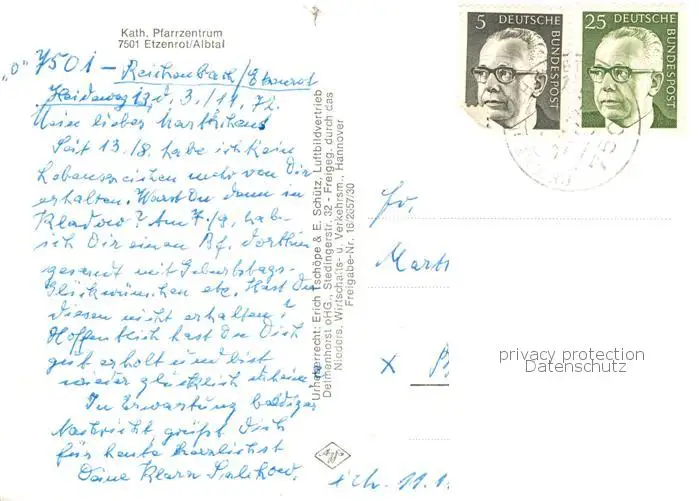 Kath. Pfarrzentrum
7501 Etzenrot/Albtal
"O" 7501 - Reichenbach/Etzenrot
Heideweg 13, d. 3./11. 72.
Mein lieber
Seit 13./8. habe ich kein
Lebenszeichen mehr von Dir
erhalten. Warst Du denn in
Kladow? Am 7./9. hab
ich Dir einen Bf. dorthin
gesandt mit Geburtstags-
Glückwünschen etc. Hast Du
diesen nicht erhalten?
Hoffentlich hast Du Dich
gut erholt und bist
wieder glücklich daheim?
In Erwartung baldiger
Nachricht grüßt Dich
für heute herzlichst
Deine Klara
Urheberrecht: Erich Tschöpe & E. Schütz, Luftbildvertrieb
Delmenhorst oHG., Stedingerstr. 32 - Freigeg. durch das
Nieders. Wirtschafts- u. Verkehrsm., Hannover
Freigabe-Nr. 16/2657/30
Agfa
5
DEUTSCHE
BUNDESPOST
25
DEUTSCHE
BUNDESPOST
Fr.
X
11.1
privacy protection
Datenschutz